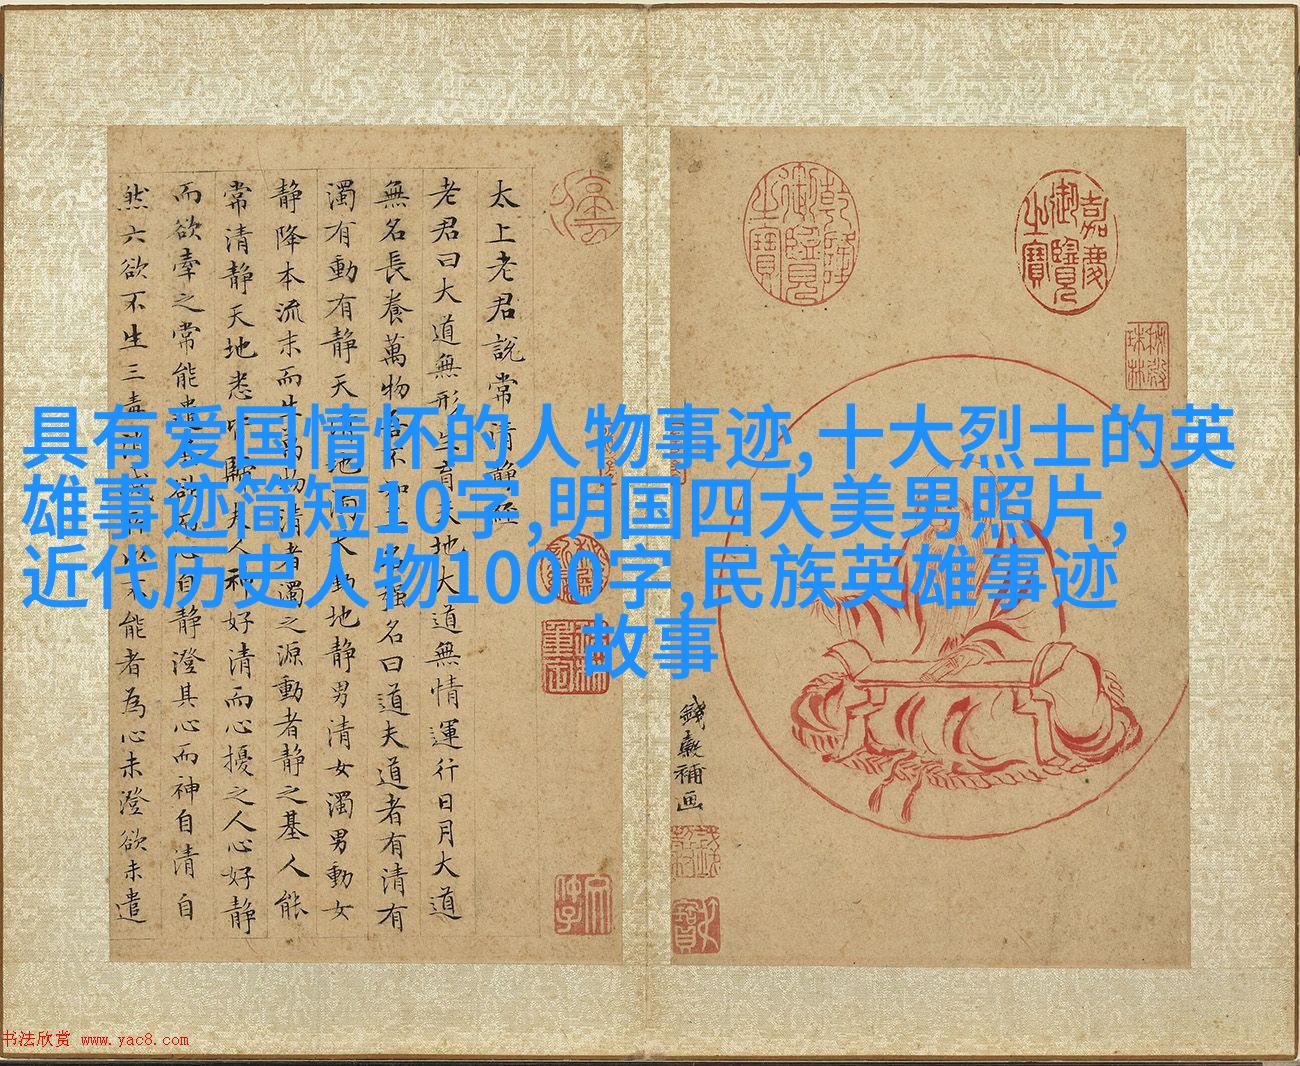 具有爱国情怀的人物事迹,十大烈士的英
雄事迹简短10字,明国四大美男照片,
近代历史人物1000字,民族英雄事迹
故事
嘉慶御覽之寶
乾隆御覽之寶
秘殿珠林
錢穀補画
太上老君說常清静經
老君曰大道無形生育天地大道無情運行日月大道
無名長養萬物吾不知其名強名曰道夫道者有清有
濁有動有静天清地濁天動地静男清女濁男動女
静降本流末而生萬物清者濁之源動者静之基人能
常清静天地悉皆歸夫人神好清而心擾之人心好静
而欲牽之常能遣其欲而心自静澄其心而神自清自
然六欲不生三毒消滅所以不能者為心未澄欲未遣
书法欣赏 www.yac8.com